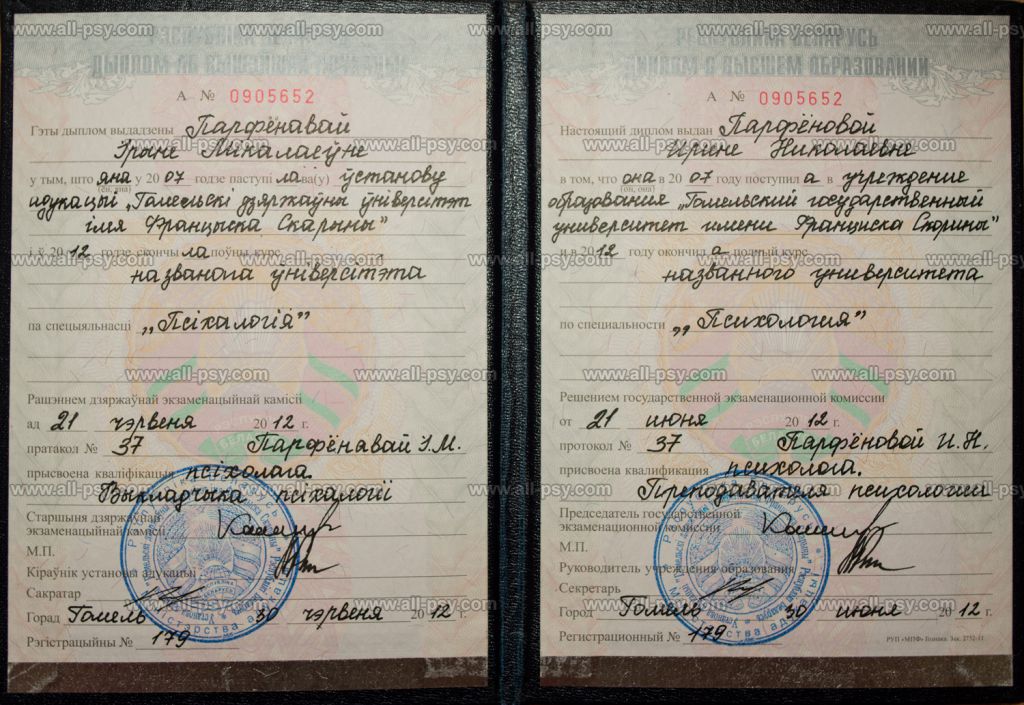 www.all-psy.com www.all-psy.com www.all-psy.com
РЭСПУБЛІКА БЕЛАРУСЬ
ДЫПЛОМ АБ ВЫШЭЙШАЙ АДУКАЦЫІ
А № 0905652
Гэты дыплом выдадзены Парфёнавай
Ірыне Мікалаеўне
у тым, што яна у 2007 годзе паступіла ва(у) ўстанову
(ён, яна)
адукацыі „Гомельскі дзяржаўны ўніверсітэт
імя Францыска Скарыны”
і ў 2012 годзе скончыла поўны курс
названага ўніверсітэта
па спецыяльнасці „Псіхалогія”
Рашэннем дзяржаўнай экзаменацыйнай камісіі
ад 21 чэрвеня 2012 г.
пратакол № 37 Парфёнавай І.М.
прысвоена кваліфікацыя псіхолага.
Выкладчыка псіхалогіі
Старшыня дзяржаўнай
экзаменацыйнай камісіі
М.П.
Кіраўнік установы адукацыі
Сакратар
Горад Гомель 30 чэрвеня 2012 г.
Рэгістрацыйны № 179
www.all-psy.com www.all-psy.com www.all-psy.com
РЕСПУБЛИКА БЕЛАРУСЬ
ДИПЛОМ О ВЫСШЕМ ОБРАЗОВАНИИ
А № 0905652
Настоящий диплом выдан Парфёновой
Ирине Николаевне
в том, что она в 2007 году поступила в учреждение
(он, она)
образования „Гомельский государственный
университет имени Франциска Скорины”
и в 2012 году окончила полный курс
названного университета
по специальности „Психология”
Решением государственной экзаменационной комиссии
от 21 июня 2012 г.
протокол № 37 Парфёновой И.Н.
присвоена квалификация психолога.
Преподавателя психологии
Председатель государственной
экзаменационной комиссии
М.П.
Руководитель учреждения образования
Секретарь
Город Гомель 30 июня 2012 г.
Регистрационный № 179
РУП «МПФ» Гознака. Зак. 2752-11